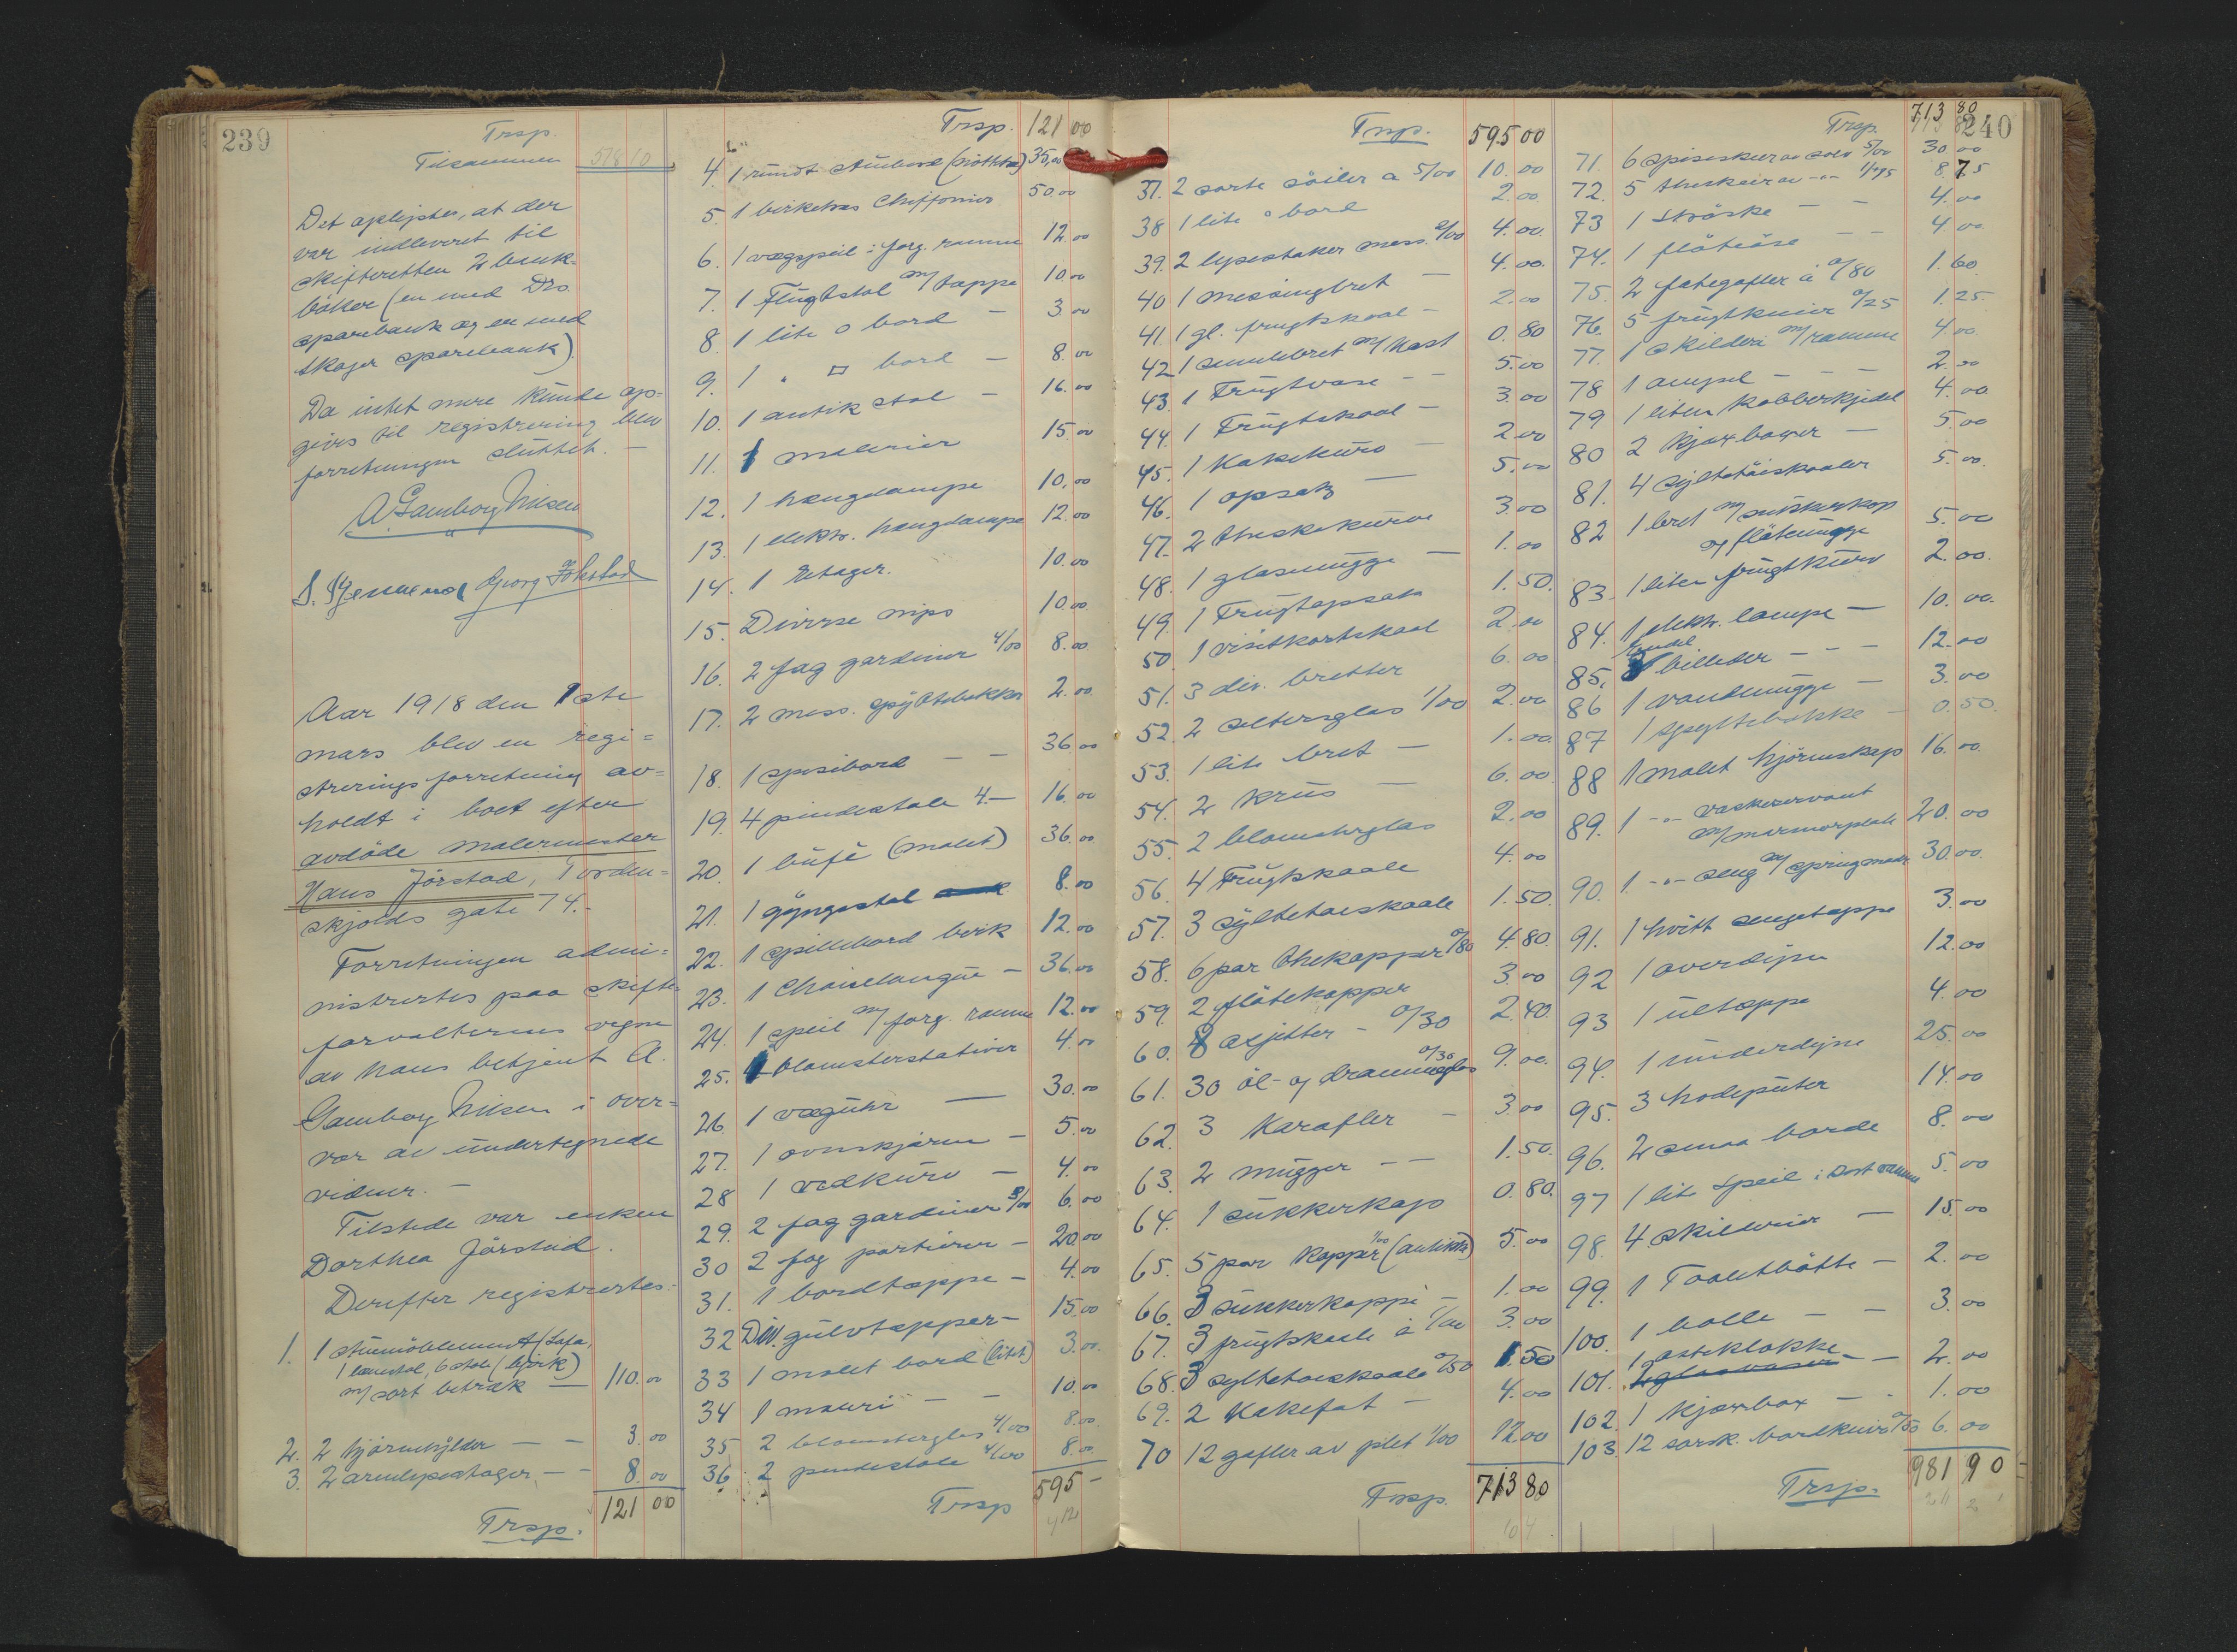 239
Trsp.
Tilsammen 578 10
Det oplystes, at der
var indleveret til
skifteretten 2 bank-
bøker (en med Drs.
sparebank og en med
Skoger sparebank).
Da intet mere kunde op-
gives til registrering blev
forretningen sluttet. —
A. Gamborg Nilsen
Georg Fokstad
Aar 1918 den 1ste
mars blev en regi=
strerings forretning av=
holdt i boet efter
avdøde malermester
Hans Jørstad, Torden=
skjolds gate 74.-
Forretningen admi=
nistrertes paa skifte
forvalterens vegne
av hans betjent A.
Gamborg Nilsen i over=
vær av undertegnede
vidner. -
Tilstede var enken
Dorthea Jørstad.
Derefter registrertes:
1. 1 stuemøblement (Sofa,
1 lænstol, 6 stole (bjørk)
m/ sort betræk — 110.00
2. 2 hjørnehylder — — 3.00
3. 2 armlysestager — - 8.00
Trsp. 121 00
Trsp. 121 00
4. 1 rundt stuebord (nøttetræ) 35,00
5 1 birketræs Chiffonier 50.00
6. 1 vægspeil i forg. ramme 12.00
7. 1 Flugtstol m/ tæppe 10.00
8. 1 lite o bord — 3.00
9. 1 " □ bord — 8.00
10. 1 antik stol — 16.00
11. 1 malerier 15.00
12. 1 hængelampe 10.00
13. 1 elektr. hænglampe 12.00
14. 1 Etager. 10.00
15. Diverse nips 10.00
16. 2 fag gardiner 4/00 8.00
17. 2 mess. spyttebakker 2.00
18. 1 spisebord — — 36.00
19. 4 pindestole 4.— 16.00
20. 1 büfè (malet) 36.00
21. 1 gyngestol 8.00
22. 1 spillebord birk 12.00
23. 1 Chaiselongue — 36.00
24. 1 speil m/ forg. ramme 12.00
25. 1 blomsterstativer 4.00
26 1 vægühr — 30.00
27. 1 ovnskjærm — 5.00
28 1 vedkurv — 4.00
29. 2 fag gardiner 3/00 6.00
30 2 fag portierer — 20.00
31. 1 bordtæppe — 4.00
32 Div. gulvtæpper — 15.00
33 1 malet bord (litet) 3.00
34 1 maleri — — 10.00
35 2 blomsterglas 4/00 8.00
36 2 pindestole 4/00 8.00
Trsp 595 -
Trsp. 595 00
37. 2 sorte søiler a 5/00 10.00
38 1 lite o bord 2.00
39. 2 lysestaker mess. 2/00 4.00
40 1 messingbret — 4.00
41. 1 gl. frugtskaal — 2.00
42 1 smulebret m/ kost 0.80
43. 1 Frugtvase — - 5.00
44. 1 Frugtskaal — 3.00
45. 1 Kakekurv — 2.00
46. 1 opsats — 5.00
47. 2 theskekurve 3.00
48. 1 glasmugge — 1.00
49. 1 Frugtopsats 1.50
50 1 visitkortskaal 2.00
51. 3 div. bretter 6.00
52. 2 seltersglas 1/00 2.00
53. 1 lite bret — 1.00
54. 2 krus — 6.00
55. 2 blomsterglas 2.00
56. 4 Frugtskaale 4.00
57. 3 syltetøiskaale 1.50
58. 6 par thekopper 0/80 4.80
59. 2 fløtekopper 3.00
60. 8 asjetter - 0/30 2.40
61. 30 øl- og dramme glas 0/30 9.00
62. 3 Karafler — 3.00
63. 2 mugger — - 1.50
64. 1 sukkerkop 0.80
65. 5 par kopper 1/00 (antikke) 5.00
66. 3 sukkerkoppe — 1.00
67. 3 frugtskaale à 1/00 3.00
68. 3 syltetøiskaale 0/50 1.50
69. 2 Kakefat — 4.00
70 12 gafler av plet 1/00 12.00
Trsp. 713 80
240
Trsp. 713 80
71. 6 spiseskeer av sølv 5/00 30.00
72. 5 theskeer av -"- 1/75 8.75
73 1 Strøske — - 4.00
74. 1 fløteøse — - 4.00
75. 2 fategafler à 0/80 1.60
76. 5 frugtkniver 0/25 1.25
77. 1 skilderi m/ ramme 4.00
78 1 ampel — - - 2.00
79 1 liten kobberkjedel 4.00
80 2 kjøxboxer — 5.00
81. 4 syltetøiskaaler 5.00
82 1 bret m/ sukkerkop
og fløtemugge 5.00
83. 1 liten frugtkurv 2.00
84. 1 elektr. lampe — 10.00
85. billeder — - - 12.00
86 1 vandmugge — 3.00
87 1 spyttebakke — 0.50
88 1 malet hjørneskap 16.00
89. 1 -"- vaskeservant
m/ marmorplate 20.00
90. 1. -"- seng m/ springmadr. 30.00
91. 1 hvitt sengetæppe 3.00
92 1 overdyne 12.00
93 1 ultæppe 4.00
94. 1 underdyne 25.00
95. 3 hodeputer 14.00
96. 2 smaa borde 8.00
97 1 lite speil i sort ramme 5.00
98. 4 skilderier — 15.00
99. 1 Toaletbøtte — 2.00
100. 1 bolle — - 3.00
101. 1 osteklokke — 2.00
102. 1 kjøxbox — - 1.00
103. 12 sorsk. bordkniver 0/50 6.00
Trsp. 981 90